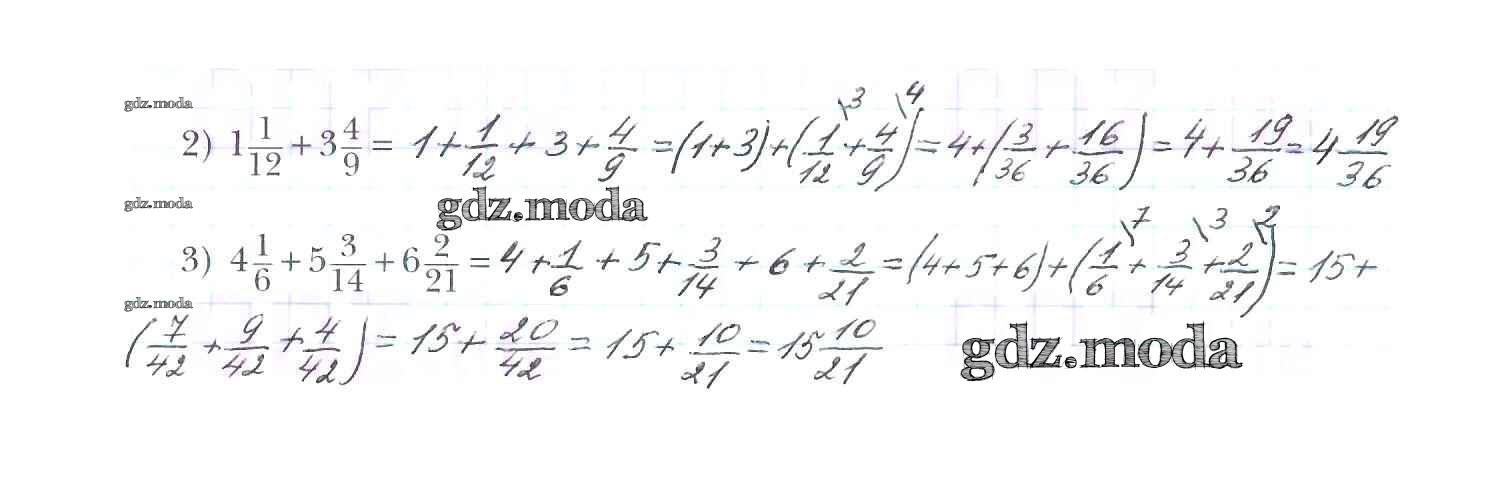 gdz.moda
2) 1 1/12 + 3 4/9 = 1 + 1/12 + 3 + 4/9 = (1+3) + (1/12 \3 + 4/9 \4) = 4 + (3/36 + 16/36) = 4 + 19/36 = 4 19/36
gdz.moda gdz.moda
3) 4 1/6 + 5 3/14 + 6 2/21 = 4 + 1/6 + 5 + 3/14 + 6 + 2/21 = (4+5+6) + (1/6 \7 + 3/14 \3 + 2/21 \2) = 15 +
gdz.moda
(7/42 + 9/42 + 4/42) = 15 + 20/42 = 15 + 10/21 = 15 10/21 gdz.moda